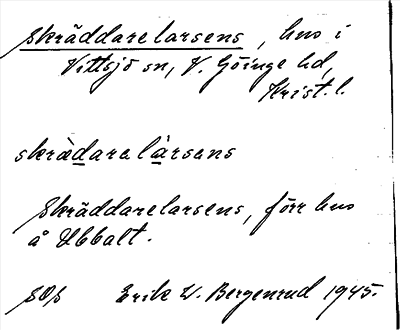 Skräddarelarsens, hus i
Vittsjö sn, V. Göinge hd,
Krist. l.
skrädarelàrsens
Skräddarelarsens, förr hus
å Ubbalt.
SOs Erik W. Bergenrud 1945.